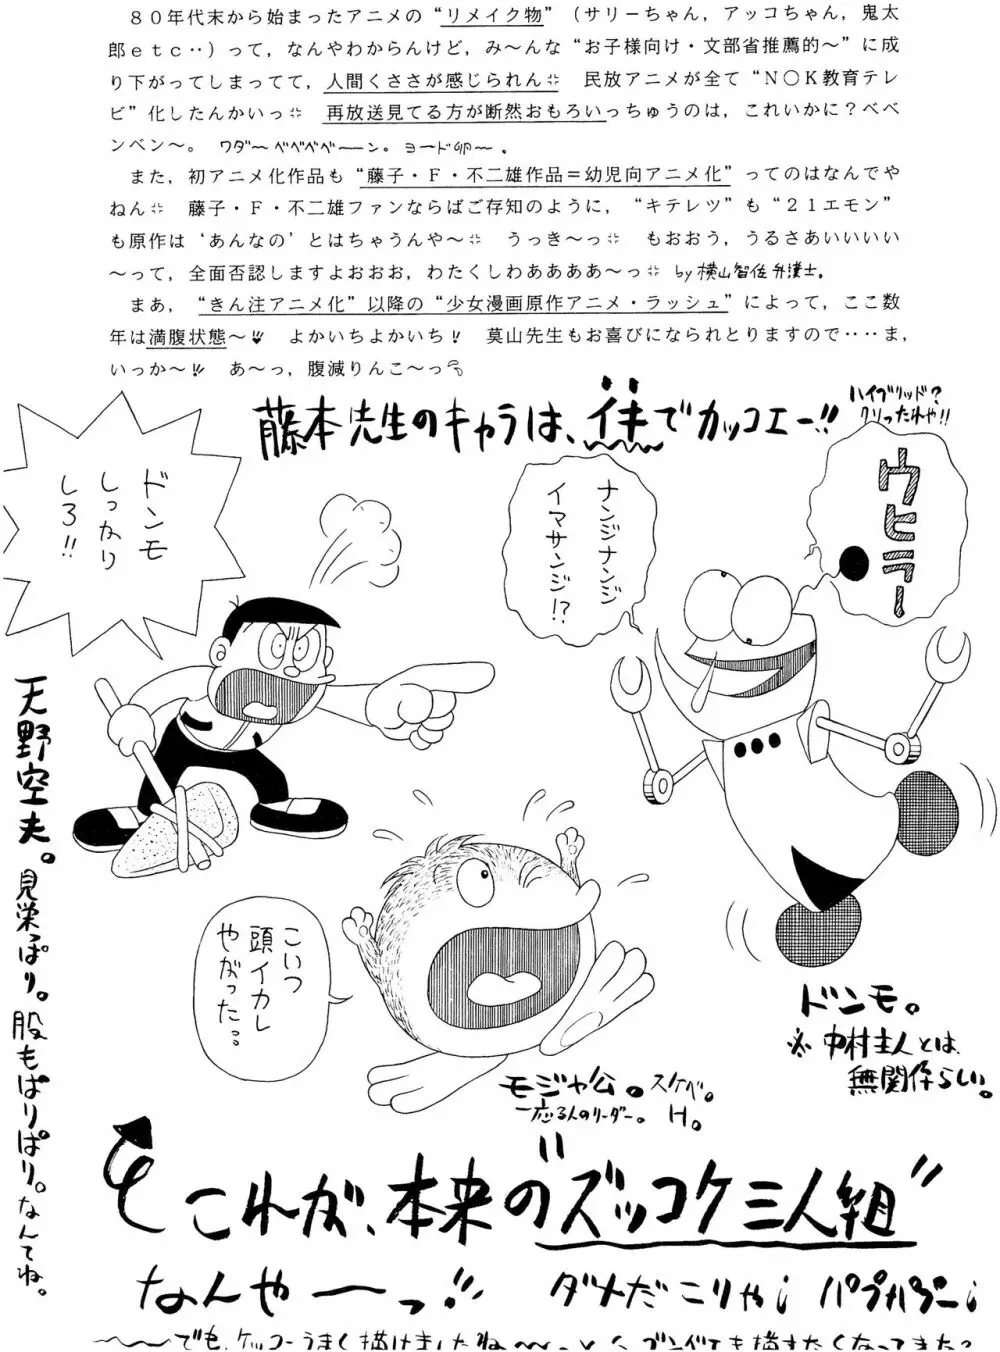 80年代末から始まったアニメの“リメイク物”（サリーちゃん，アッコちゃん，鬼太
郎etc‥）って，なんやわからんけど，み～んな“お子様向け・文部省推薦的～”に成
り下がってしまってて，人間くささが感じられん💢　民放アニメが全て“N○K教育テレ
ビ”化したんかいっ💢　再放送見てる方が断然おもろいっちゅうのは，これいかに？ベベ
ンベン～。　ワダ～ベベベベ～ーン。ヨード卵～。
　また，初アニメ化作品も“藤子・F・不二雄作品＝幼児向アニメ化”ってのはなんでや
ねん💢　藤子・F・不二雄ファンならばご存知のように，“キテレツ”も“21エモン”
も原作は‘あんなの’とはちゃうんや～💢　うっき～っ💢　もおおう，うるさあいいいい
～って，全面否認しますよおおお，わたくしわああああ～っ💢 by 横山智佐弁護士。
　まあ，“きん注アニメ化”以降の“少女漫画原作アニメ・ラッシュ”によって，ここ数
年は満腹状態～♥　よかいちよかいち！　莫山先生もお喜びになられとりますので‥‥ま，
いっか～!!　あ～っ，腹減りんこ～っ
藤本先生のキャラは、イキでカッコエー!!
ハイブリッド?
クソったれや!!
ドンモ
しっかり
しろ!!
ナンジナンジ
イマサンジ!?
ウヒラー
天野空夫。見栄っぱり。股もぱりぱり。なんてね。
こいつ
頭イカレ
やがった‥
ドンモ。
※中村主人とは、
無関係らしい。
モジャ公。スケベ。
一応３人のリーダー。H。
これが、本来の“ズッコケ三人組”
なんや――っ!!　ダメだこりゃ¡ パプパプー¡
～～でも、ケッコーうまく描けましたね～～